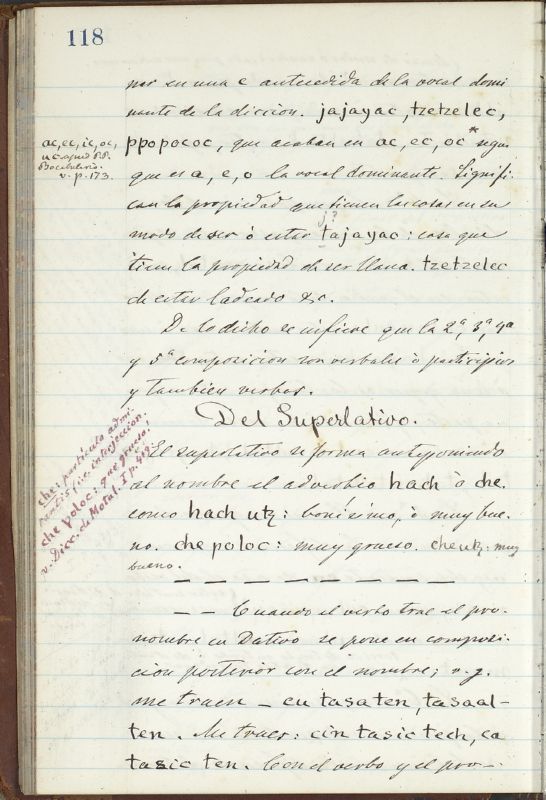 118
nar en una c antecedida de la vocal domi
nante de la diccion. jajayac, tzetzelec,
ppopococ, que acaban en ac, ec, oc* segun
que es a, e, o la vocal dominante. Signifi-
can la propiedad que tienen las cosas en su
j?
modo de ser ó estar tajayac: cosa que
tiene la propiedad de ser llana. tzetzelec
de estar ladeado &c.
De lo dicho se infiere que la 2ª, 3ª, 4ª
y 5ª composicion son verbales ò participios
y tambien verbos.
Del Superlativo.
El superlativo se forma anteponiendo
al nombre el adverbio hach ò che.
como hach utz: bonísimo, ò muy bue-
no. che poloc: muy grueso. che utz: muy
bueno.
— — — — — — — — —
— — Cuando el verbo trae el pro-
nombre en Dativo se pone en composi-
cion posterior con el nombre; v.g.
me traen — cu tasaten, tasaal-
ten. Me traes: cin tasic tech, ca
tasic ten. Con el verbo y el pro—
ac, ec, ic, oc,
uc apud P.P.
v. p. 173.
che: particula admi-
che poloc: que grueso!
v. Dicc. de Motul. I p. 419.